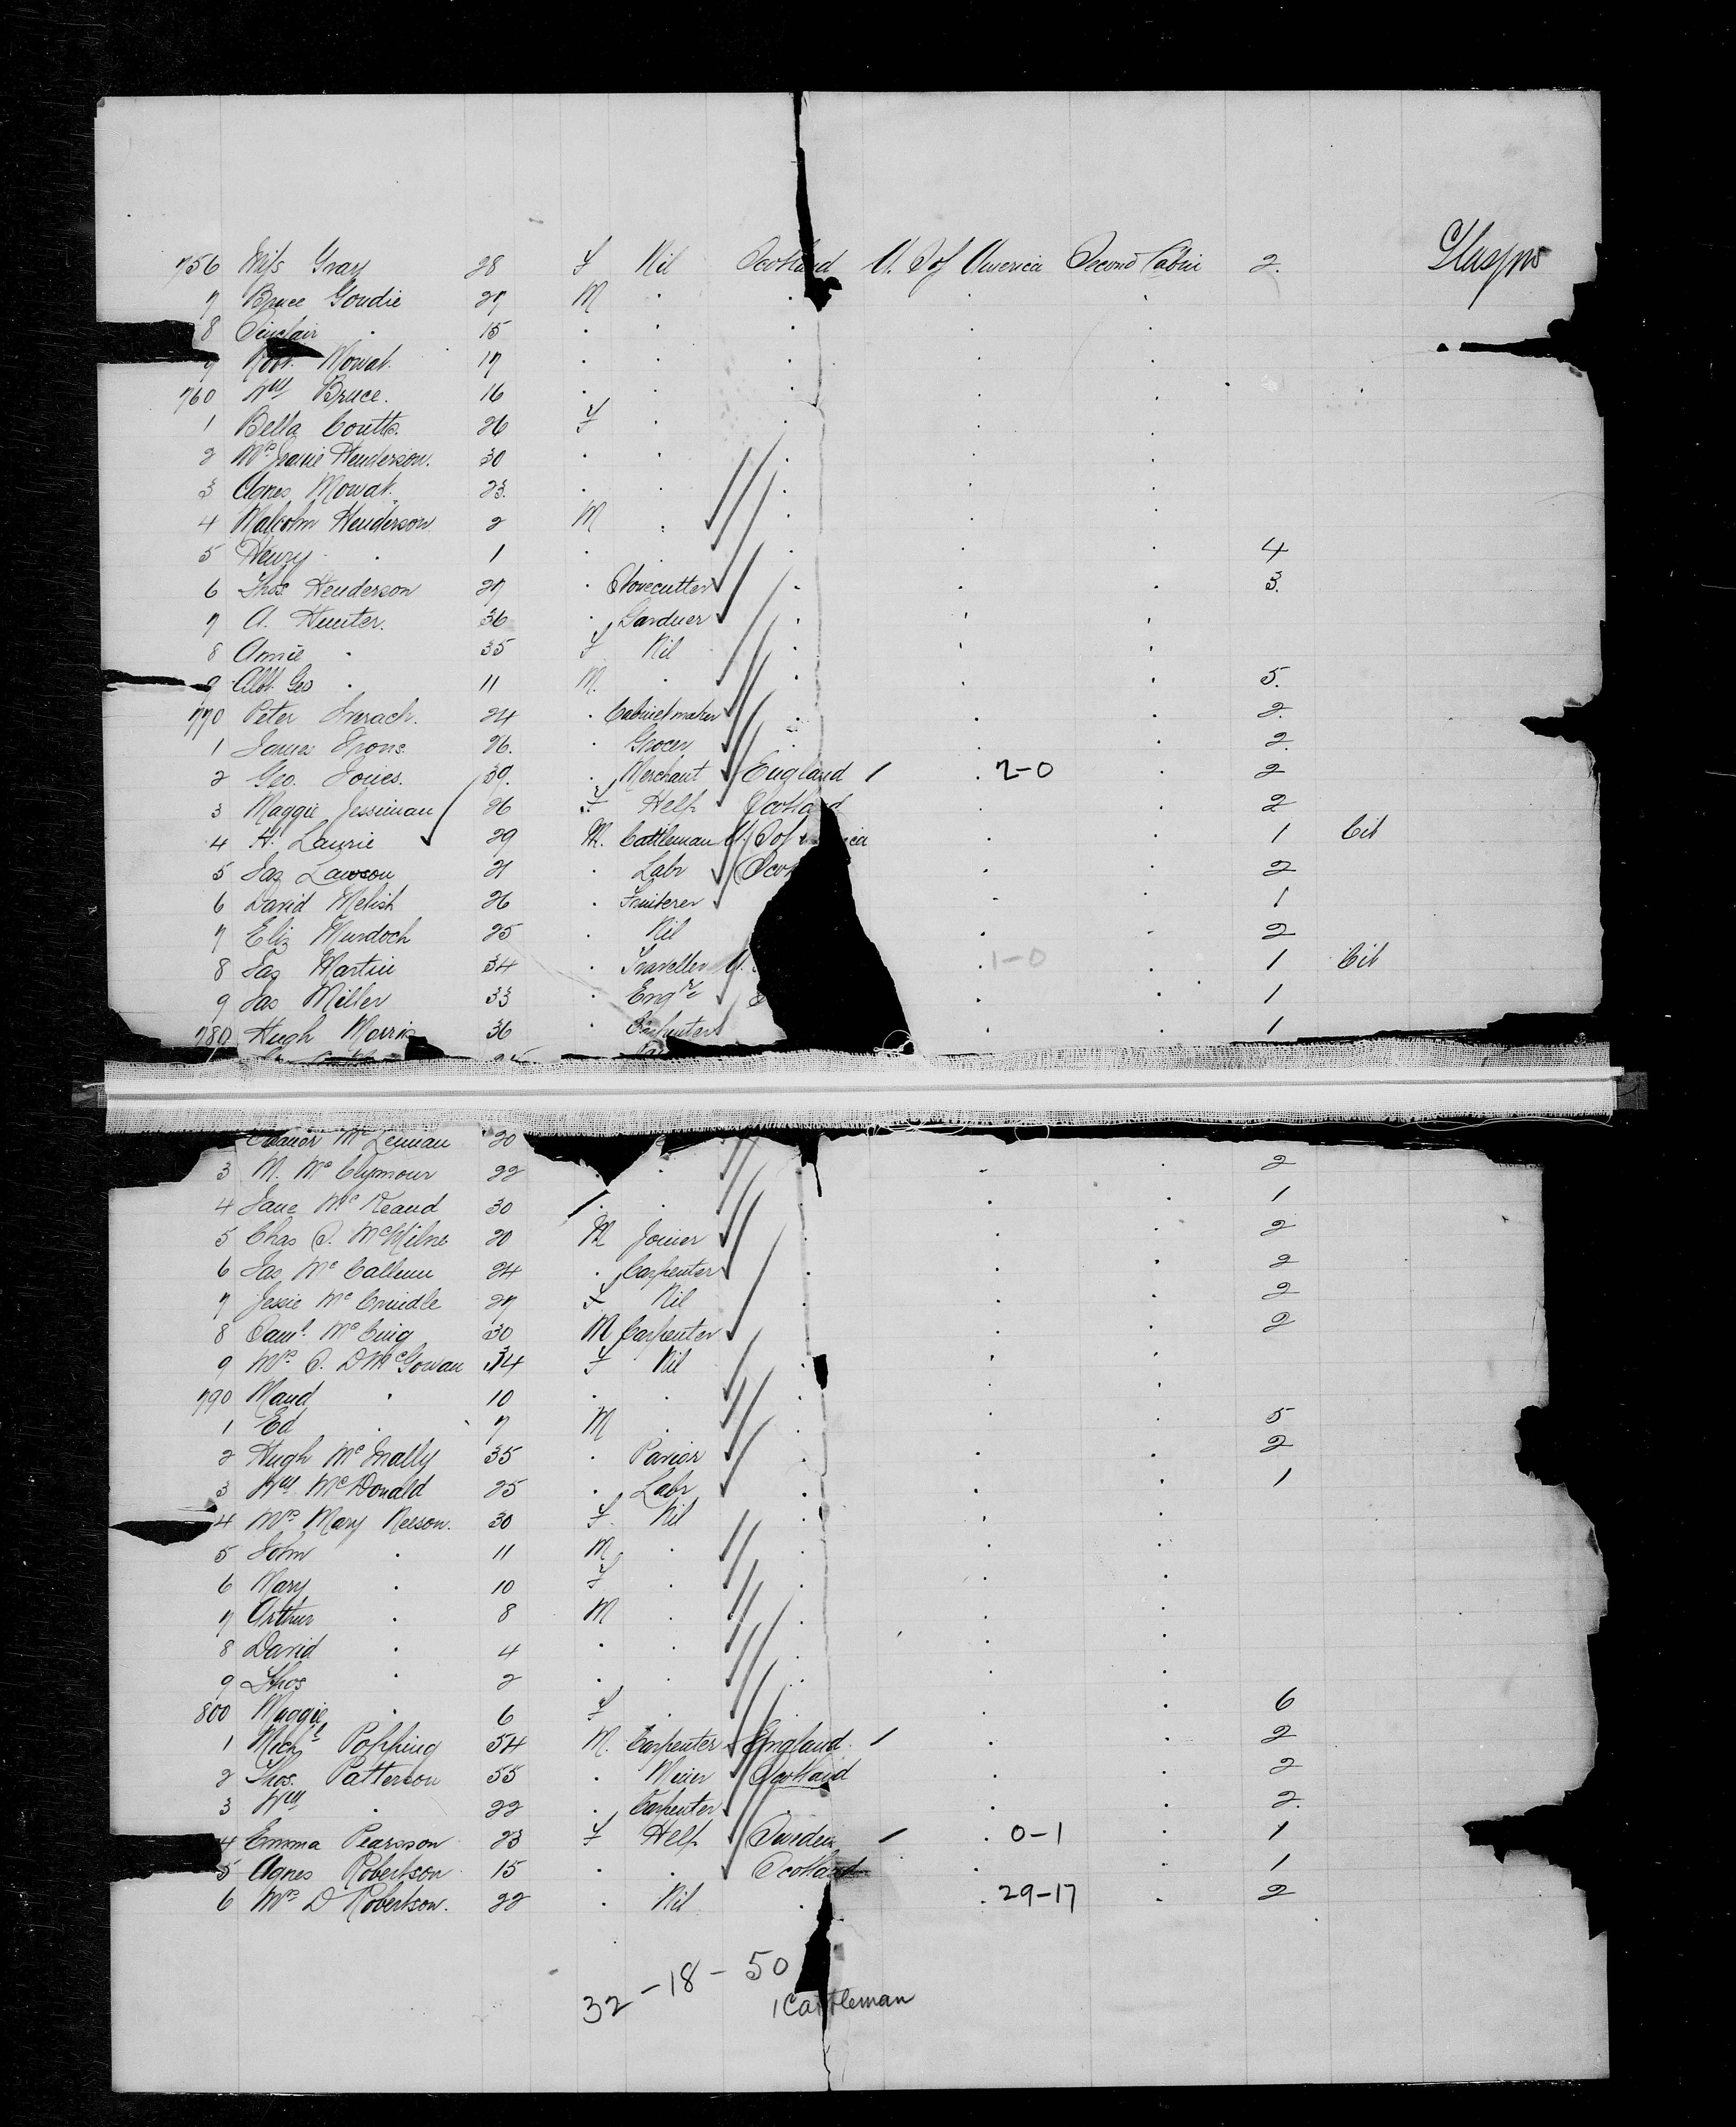 756 Miss Gray 28 F Nil Scotland U. S of America Second Cabin 2. Glasgow
7 Bruce Goudie 27 M . . . .
8 Sinclair . 15 . . . . .
9 Robt. Mowat. 17 . . . . .
760 Wm Bruce. 16 . . . . .
1 Bella Coutts. 26 F . . . .
2 Mrs Jeanie Henderson. 30 . . . . .
3 Agnes Mowat. 23. . . . . .
4 Malcolm Henderson 2 M . . . .
5 Henry . 1 . . . . . 4
6 Thos. Henderson 27 . Stonecutter . . . 3.
7 A. Hunter. 36 . Gardner . . .
8 Annie . 35 F Nil . . .
9 Albt. Geo . 11 M. . . . . 5.
770 Peter 24 . Cabinetmaker . . . 2.
1 James Irons. 26. . Grocer . . . 2.
2 Geo. Jones. 39. . Merchant England / . 2-0 . 2
3 Maggie Jessiman 26 F Help Scotland . . 2
4 A. Laurie 29 M. Cattleman U. S of ica . . 1 Cit
5 Jas Lawson 21 . Labr Scot . . 2
6 David Melish 26 . Fruiterer . . 1
7 Eliz Murdoch 25 . Nil . . 2
8 Jas Martin 34 . Traveller U. . 1-0 . 1 Cit
9 Jas Miller 33 . Engr . . 1
780 Hugh Morris 36 . Carpenter . . 1
McLennan 20
3 M. McClymour 22 . . . . 2
4 Jane McKeand 30 . . . . 1
5 Chas S. McMilne 20 M Joiner . . . 2
6 Jas McCallum 24 . Carpenter . . . 2
7 Jessie McCrindle 27 F Nil . . . 2
8 Saml. McCuig 30 M Carpenter . . . 2
9 Mrs S. D McGowan 34 F Nil . . .
790 Maud . 10 . . . . .
1 Ed . 7 M . . . . 5
2 Hugh McInally 35 . Pavior . . . 2
3 Wm McDonald 25 . Labr . . . 1
4 Mrs Mary Nelson. 30 F. Nil . . .
5 John . 11 M . . . .
6 Mary . 10 F . . . .
7 Arthur . 8 M . . . .
8 David . 4 . . . . .
9 Thos . 2 . . . . .
800 Maggie . 6 F . . . . 6
1 Michl Popping 54 M. Carpenter England. / . . 2
2 Thos. Patterson 55 . Miner Scotland . . 2
3 Wm . 22 . Carpenter . . . 2.
4 Emma Pearsson 23 F Help Sweden / . 0-1 . 1
5 Agnes Robertson 15 . . Scotland . . 1
6 Mrs D Robertson. 22 . Nil . . 29-17 . 2
32 - 18 - 50
1 Cattleman